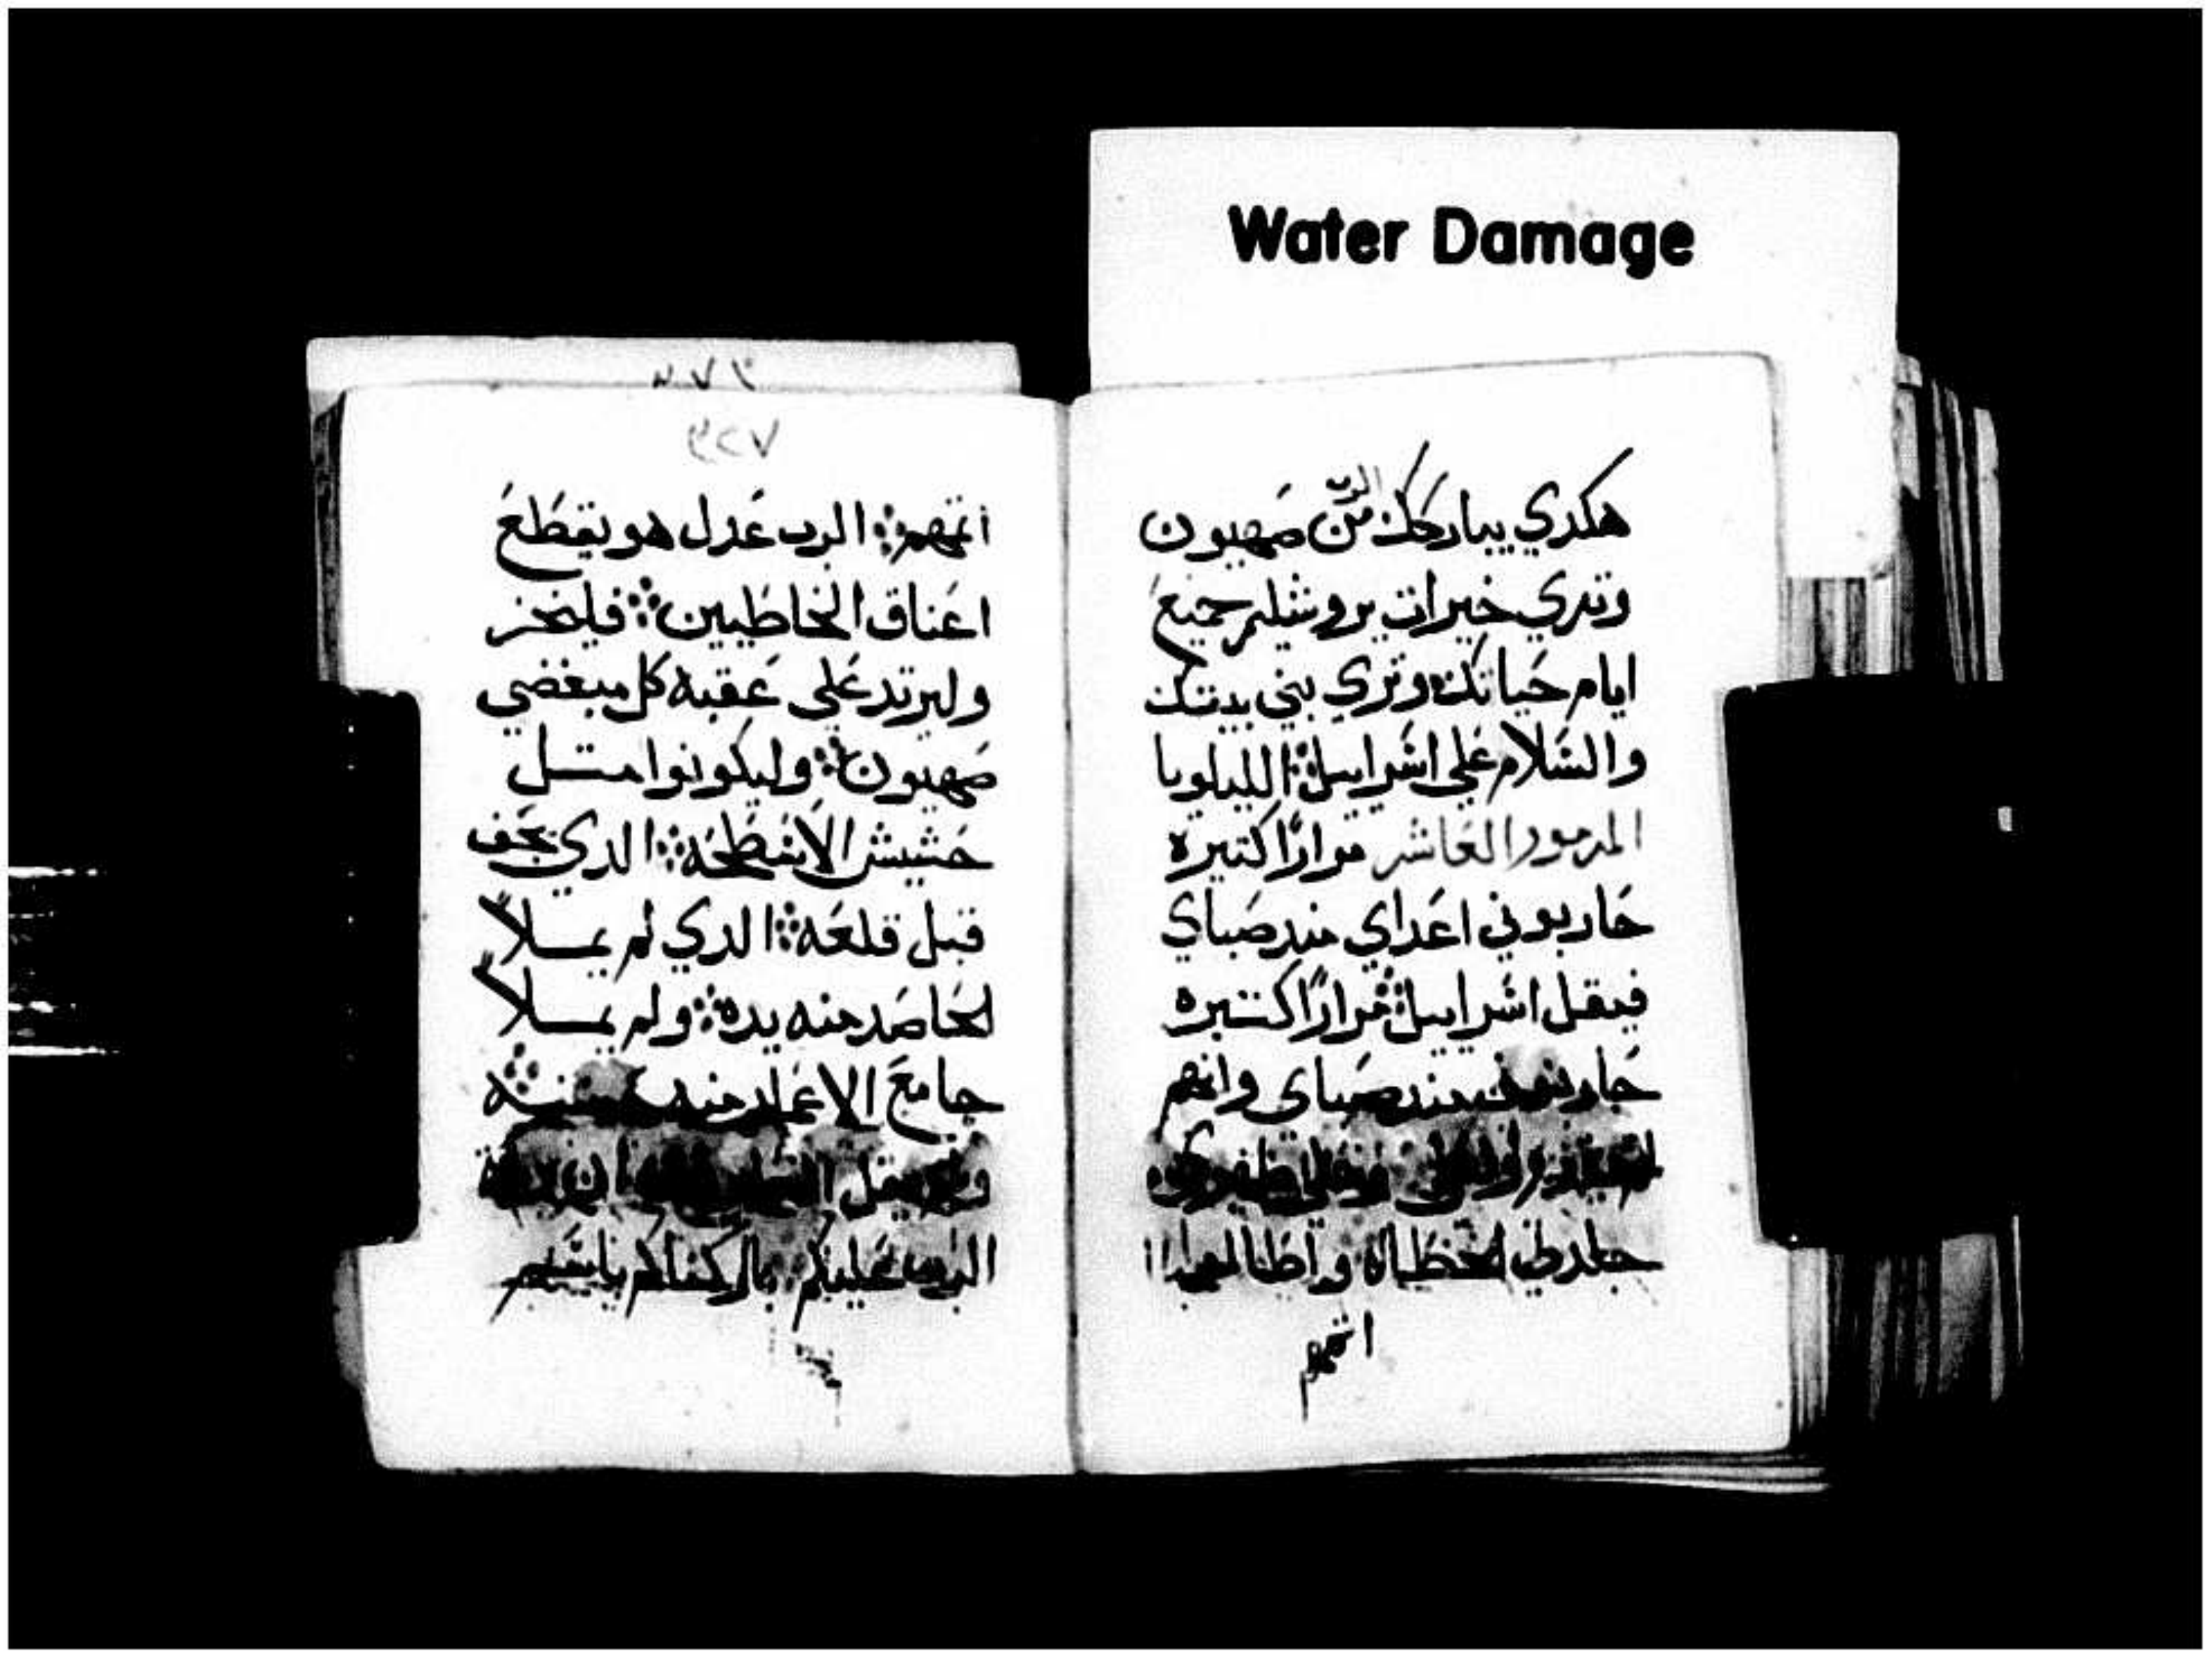 Water Damage
هكدي يباركك الرب من صهيون
وتري خيرات يروشليم جميع
ايام حياتك وتري بني بنيك
والسلام علي اسراييل الليلويا
المزمور العاشر مرارًا كتيره
حاربوني اعداي مند صباي
فيقل اسراييل مرارًا كتيره
حاربوني مند صباي وانهم
علي ظهري
جلدوني الخطاه واطالوا
اتمهم
٧٢٩
اتمهم الرب عدل هو يقطع
اعناق الخاطيين فليخز
وليرتد علي عقبه كل مبغضي
صهيون وليكونوا متل
حشيش الاسطحه الدي يجف
قبل قلعه الدي لم يملاً
الحاصد منه يده ولم يملاً
جامع الاغمار منه حضنه
ولم يقل ان بركة
الرب عليكم باركناكم باسم